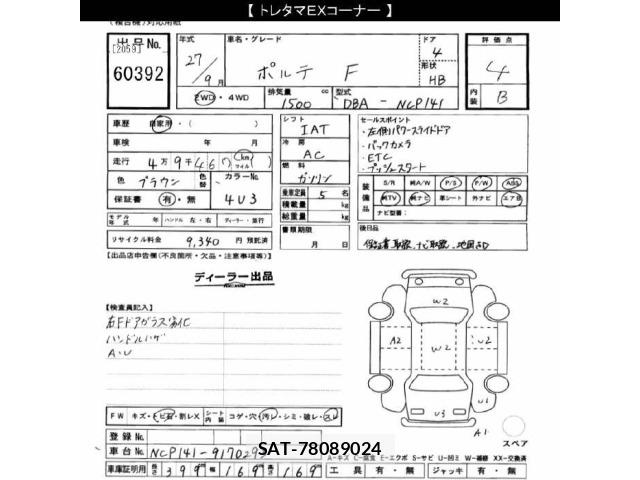 【 トレタマEXコーナー 】
出品No.
[2059]
60392
年式
27/9月
車名・グレード
ポルテ F
ドア
4
形状
HB
評価点
4
内装
B
2WD・4WD
排気量
1500
cc
型式
DBA - NCP141
車歴
自家用・( )
車検 年 月
走行
4万9千46
km
マイル
色
ブラウン
色替
カラーNo.
4U3
保証書
有・無
シフト
IAT
冷房
AC
燃料
ガソリン
乗車定員
5 名
積載量 kg
総重量 kg
セールスポイント
・左側パワースライドドア
・バックカメラ
・ETC
・プッシュスタート
装備品
S/R
純A/W
P/S
P/W
ABS
純TV
純ナビ
革シート
外ナビ
エアB
ナビ型番:
モデル年式 年
ハンドル 左・右
ディーラー・並行
リサイクル料金 9,340 円 預託済
書類期限
月 日
後日品
保証書、取説、ナビ取説、地図SD
[出品店申告欄(不良箇所・欠品・注意事項等)]
ディーラー出品
[検査員記入]
右Fドアガラス劣化
ハンドルハゲ
A・U
W2
A2
W2
W2
U1
U3
A1
スペア
FW
キズ・トビ石・割レX
シート内装
コゲ・穴・汚レ・シミ・破レ・スレ
登録No.
車台No.
NCP141-917029
SAT-78089024
A-キズ C-腐食 E-エクボ S-サビ U-凹ミ W-補修 XX-交換済
車庫証明用
長さ 399
幅 169
高さ 169
工具 有・無
ジャッキ 有・無